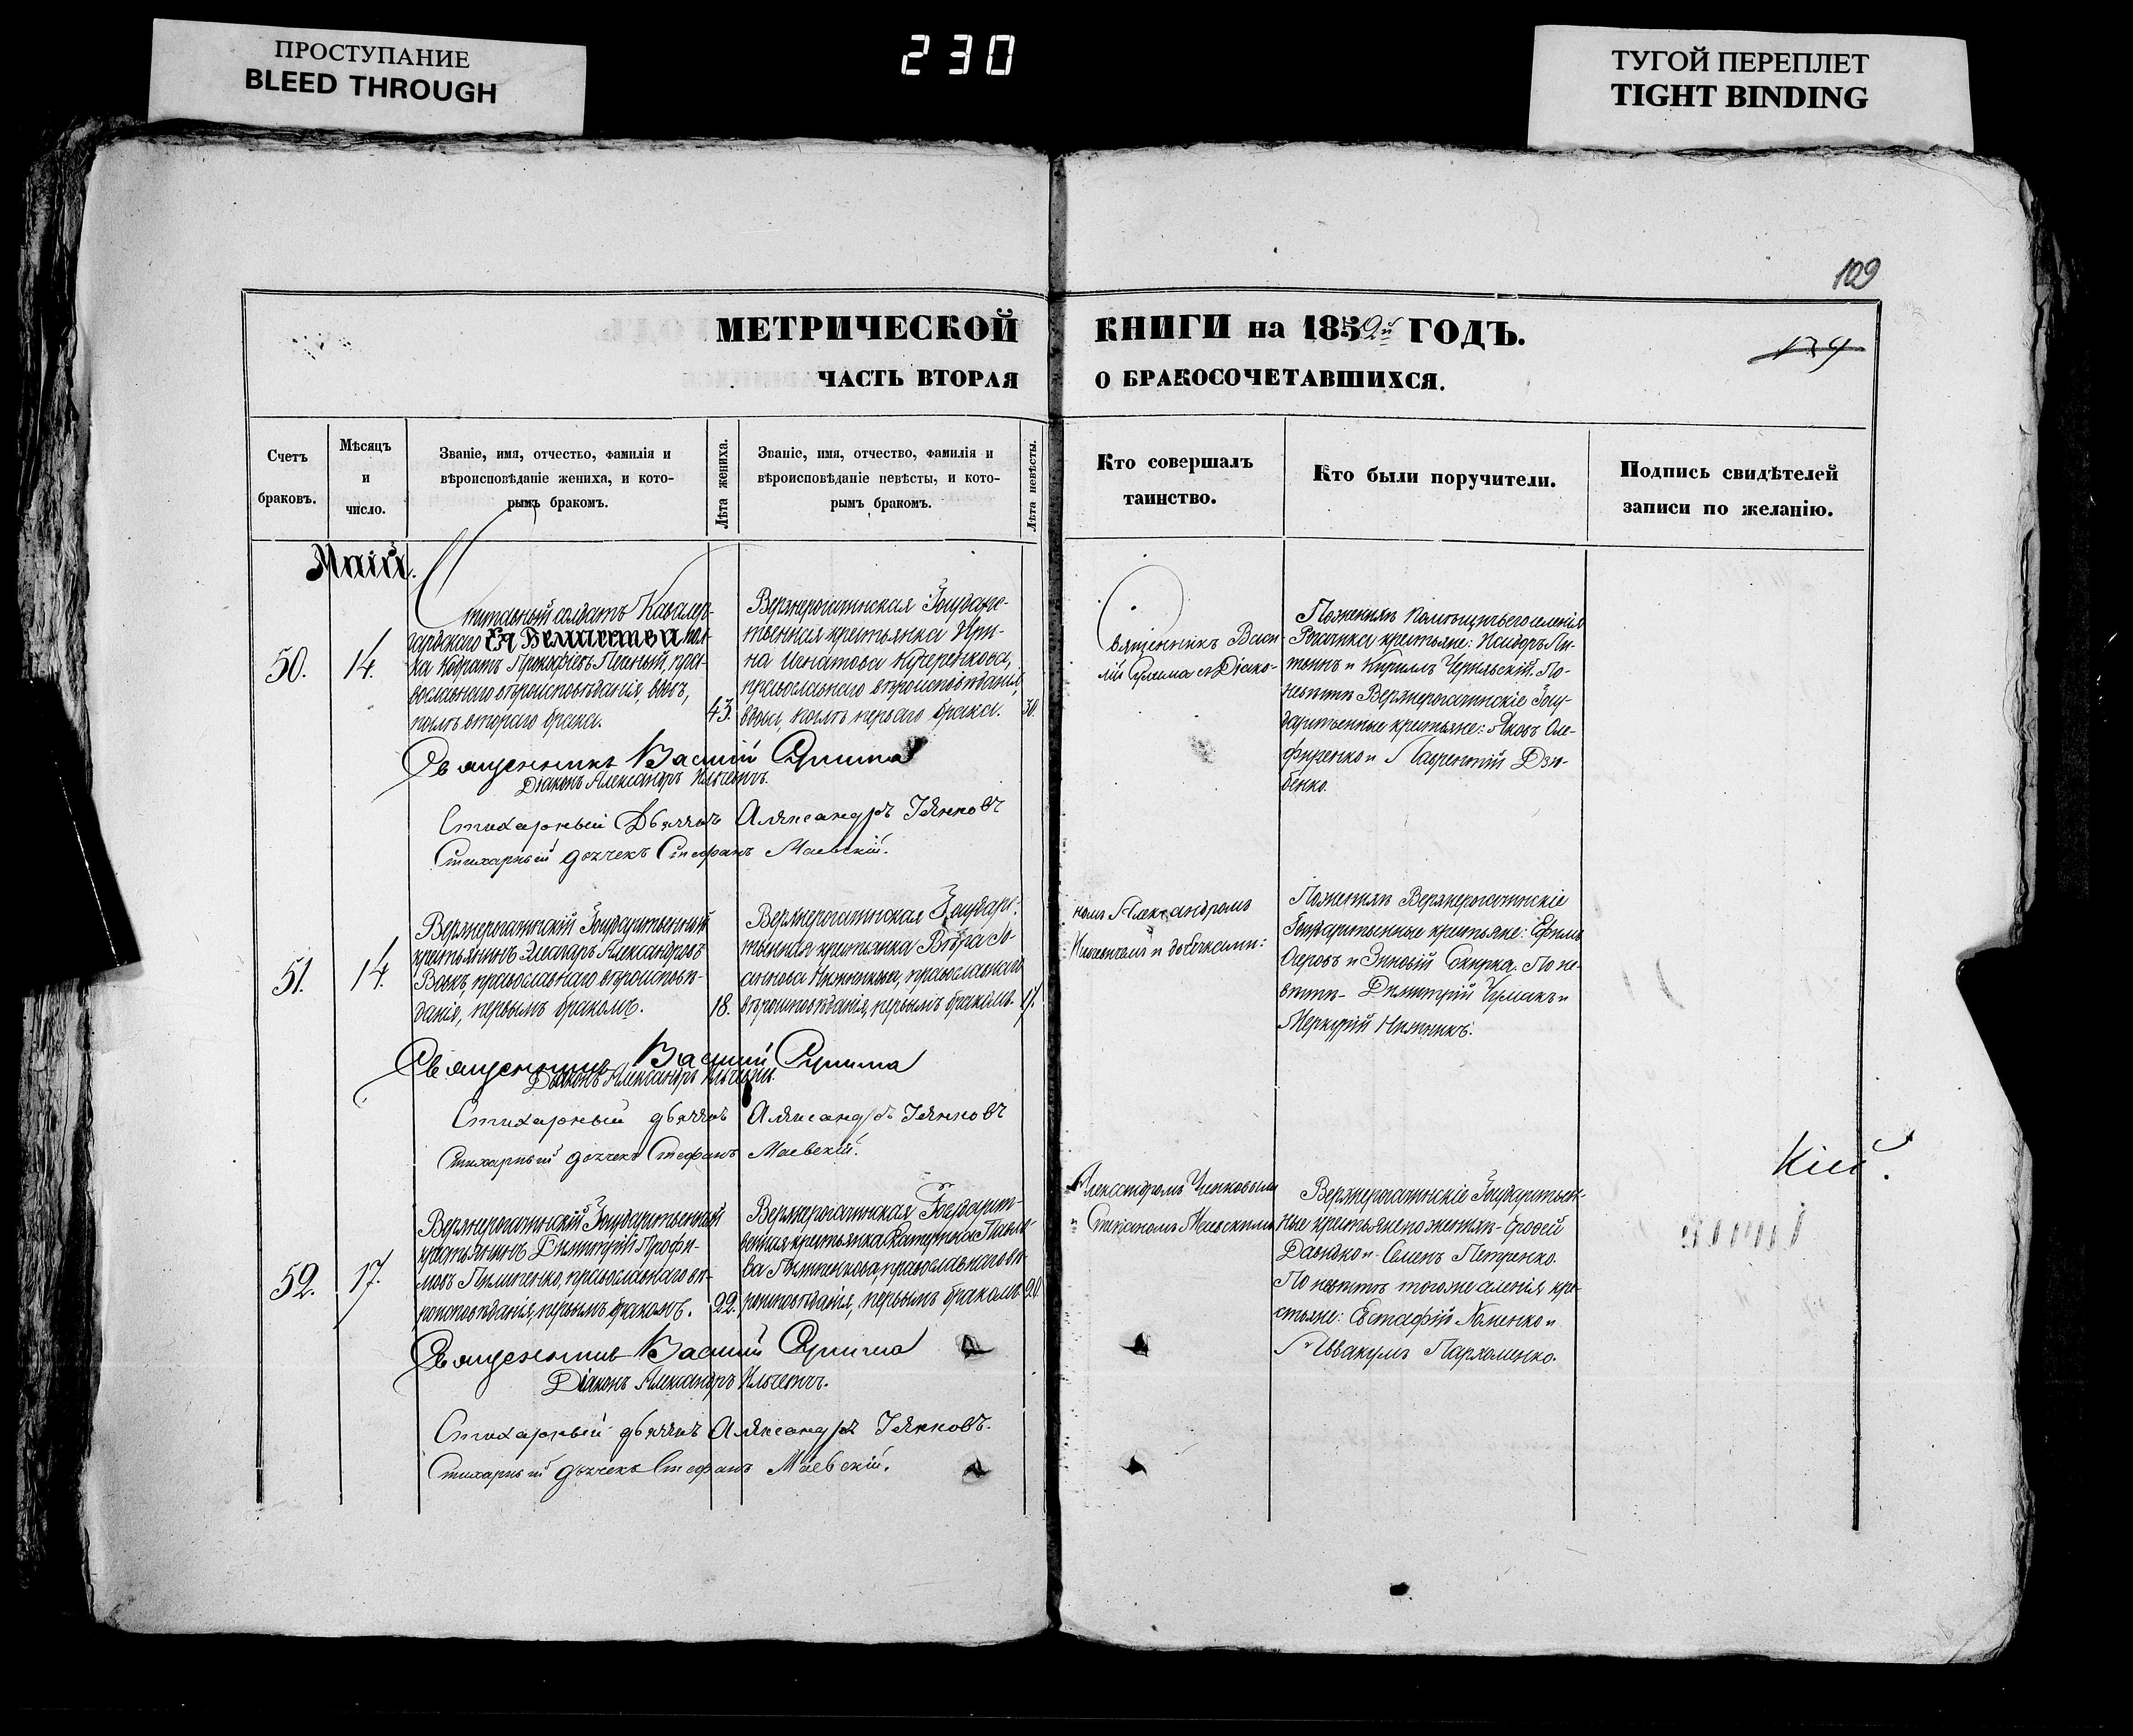 ПРОСТУПАНИЕ
BLEED THROUGH
230
ТУГОЙ ПЕРЕПЛЕТ
TIGHT BINDING
109
МЕТРИЧЕСКОЙ
КНИГИ на 1852й ГОДЪ.
ЧАСТЬ ВТОРАЯ
О БРАКОСОЧЕТАВШИХСЯ.
Счетъ
браковъ.
Мѣсяцъ
и
число.
Званіе, имя, отчество, фамилія и
вѣроисповѣданіе жениха, и кото-
рымъ бракомъ.
Лѣта жениха.
Званіе, имя, отчество, фамилія и
вѣроисповѣданіе невѣсты, и кото-
рымъ бракомъ.
Лѣта невѣсты.
Кто совершалъ
таинство.
Кто были поручители.
Подпись свидѣтелей
записи по желанію.
Маій.
50.
14.
солдатъ Кавалер-
гардскаго Ея Величества пол-
ка Кодратъ Прокофіевъ пра-
вославнаго вѣроисповѣданія, вдовъ,
послѣ втораго брака.
43.
Верхнерогачинская Государс-
твенная крестьянка Ири-
на Игнатова Кучеренкова,
православнаго вѣроисповѣданія,
вдова, послѣ перваго брака.
30.
Священникъ Васи-
лій и Діако-
По женихѣ помѣщичьего селенія
Рогачика крестьяне:
и Кирилъ Чернявскій. По
невѣстѣ Верхнерогачинскіе Госу-
дарственные крестьяне: Яковъ Оле-
фиренко и Лаврентій Дзю-
бенко.
Священникъ Василій
Діаконъ Александръ Ильчевичъ.
Стихарный Дьячекъ Александръ
Стихарный дьячекъ Стефанъ Маевскій.
51.
14.
Верхнерогачинскій Государственный
крестьянинъ Александровъ
Вовкъ, православнаго вѣроисповѣ-
данія, первымъ бракомъ.
18.
Верхнерогачинская Государс-
твенная крестьянка Вѣра
православнаго
вѣроисповѣданія, первымъ бракомъ.
17.
номъ Александромъ
Ильчевичемъ и дьячками:
По женихѣ Верхнерогачинскіе
Государственные крестьяне: Ефимъ
и Зиновій Сокирка. По не-
вѣстѣ - Димитрій Чумакъ и
Меркурій Нижникъ.
Священникъ Василій
Діаконъ Александръ Ильчевичъ.
Стихарный дьячекъ Александръ
Стихарный дьячекъ Стефанъ Маевскій.
52.
17.
Верхнерогачинскій Государственный
крестьянинъ Димитрій Трофи-
мовъ Пилипенко, православнаго вѣ-
роисповѣданія, первымъ бракомъ.
22.
Верхнерогачинская Государст-
венная крестьянка Катерина Павло-
ва православнаго вѣ-
роисповѣданія, первымъ бракомъ.
20.
Александромъ
и Стефаномъ Маевскимъ
Верхнерогачинскіе Государствен-
ные крестьяне по женихѣ -
и Семенъ Петренко.
По невѣстѣ того же селенія кре-
стьяне: Евстафій Хоменко и
Аввакумъ Пархоменко.
Священникъ Василій
Діаконъ Александръ Ильчевичъ.
Стихарный дьячекъ Александръ
Стихарный дьячекъ Стефанъ Маевскій.